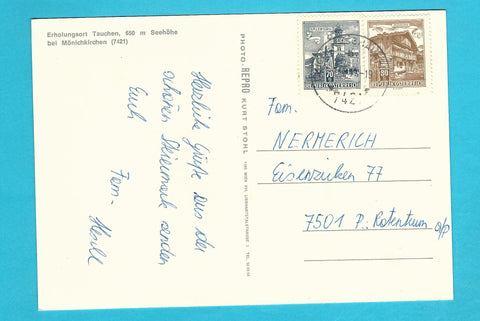 Erholungsort Tauchen, 650 m Seehöhe
bei Mönichkirchen (7421)
Herzliche Grüße aus der
schönen Steiermark senden
Euch
Fam.
PHOTO-REPRO KURT STOHL
70
80
REPUBLIK ÖSTERREICH
7421
Fam.
NERMERICH
Eisenzicken 77
7501 P.: Rotenturm a/P